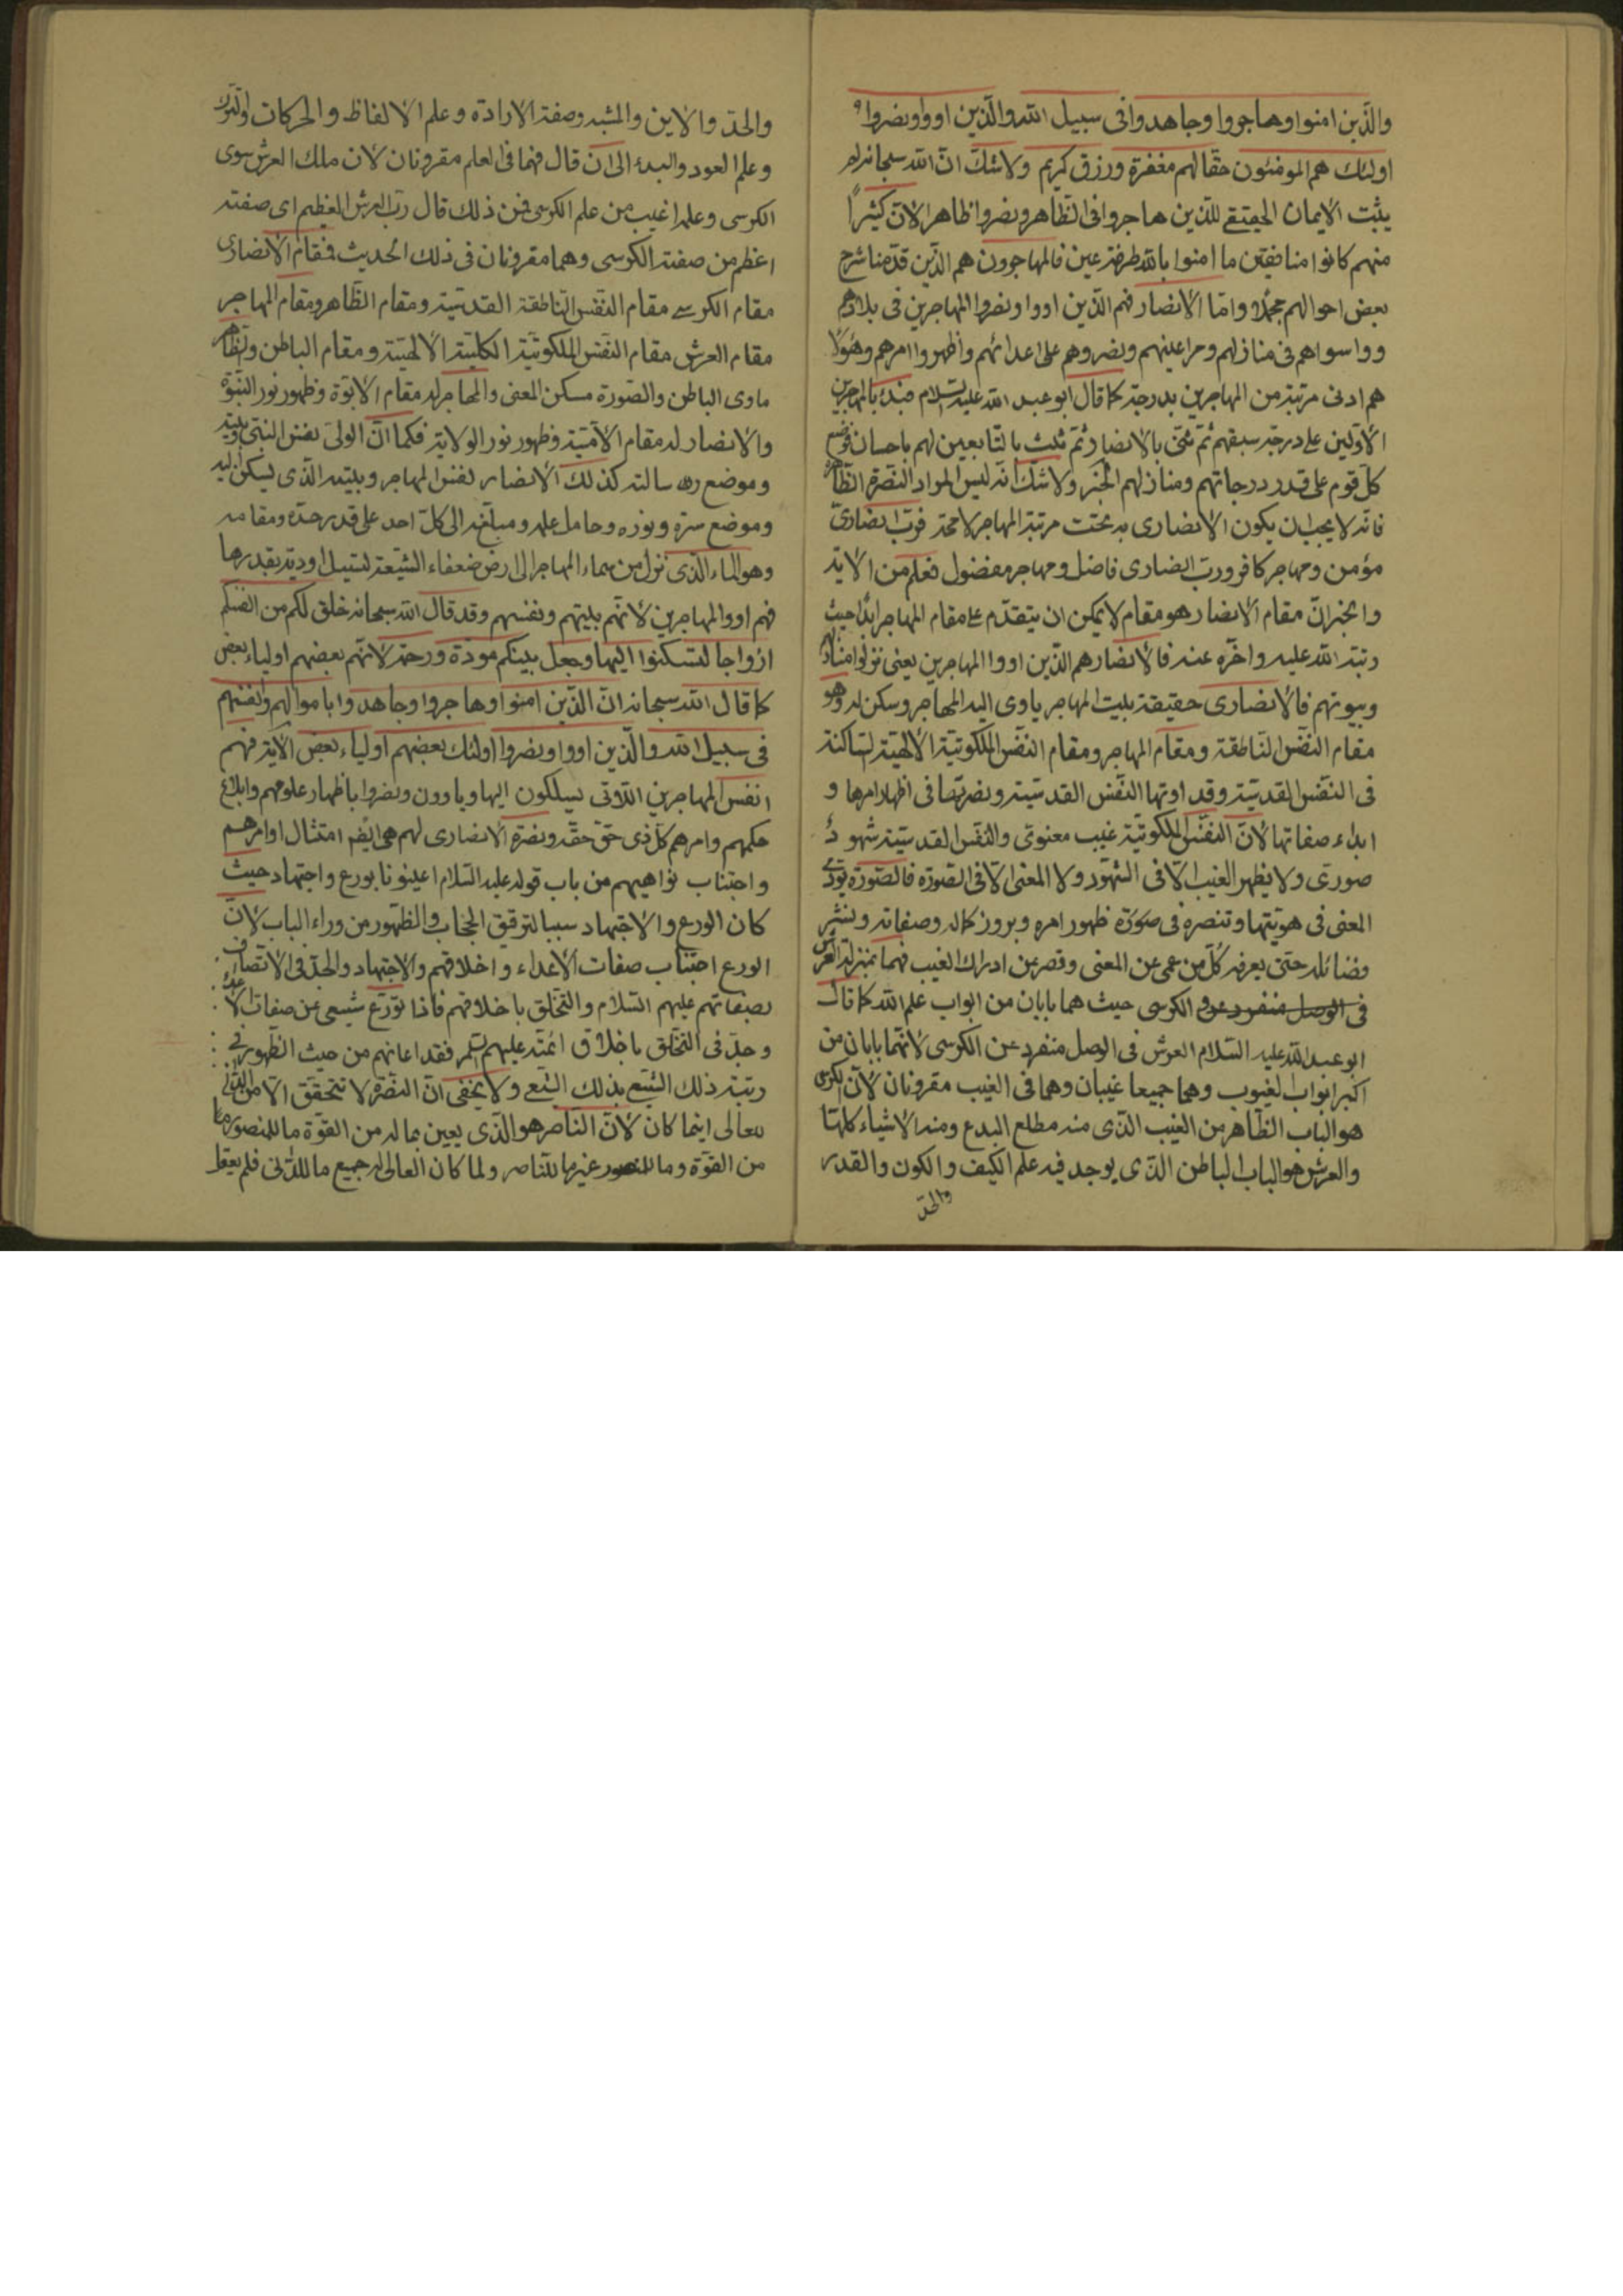 والذين امنوا وهاجروا وجاهدوا فى سبيل الله والذين اووا ونصروا
اولئك هم المومنون حقا لهم مغفرة ورزق كريم ولاشك ان الله سبحانه لم
يثبت الايمان الحقيقى للذين هاجروا فى الظاهر ونصروا ظاهرا لان كثيراً
منهم كانوا منافقين ما امنوا بالله طرفة عين فالمهاجرون هم الذين قدمنا شرح
بعض احوالهم مجملا واما الانصار فهم الذين اووا ونصروا المهاجرين فى بلادهم
وواسواهم فى منازلهم ومراعيتهم ونصروهم على اعدائهم واظهروا امرهم وهؤلا
هم ادنى مرتبة من المهاجرين بدرجة كما قال ابو عبد الله عليه السلام فبدء بالمهاجرين
الاولين على درجة سبقهم ثم ثنى بالانصار ثم ثلث بالتابعين لهم باحسان فوضع
كل قوم على قدر درجاتهم ومنازلهم الخبر ولاشك انه ليس المراد النصرة الظاهرة
فانه لا يجب ان يكون الانصارى به تحت مرتبة المهاجر لا محة فرب انصارى
مؤمن ومهاجر كافر ورب انصارى فاضل ومهاجر مفضول فعلم من الاية
والخبر ان مقام الانصار هو مقام لا يمكن ان يتقدم على مقام المهاجر ابدا حيث
رتبة الله عليه واخره عنه فالانصار هم الذين اووا المهاجرين يعنى نزلوا منازلهم
وبيوتهم فالانصارى حقيقة بيت المهاجر ياوى اليه المهاجر وسكن له وهو
مقام النفس الناطقة ومقام المهاجر ومقام النفس الملكوتية الالهية الساكنة
فى النفس القدسية وقد اوتها النفس القدسية ونصرتها فى اظهار امرها و
ابداء صفاتها لان النفس الملكوتية غيب معنوى والنفس القدسية شهود
صورى ولا يظهر الغيب الا فى الشهود ولا المعنى الا فى الصورة فالصورة تؤدى
المعنى فى هويتها وتنصره فى صورة ظهور امره وبروز كماله وصفاته ونشر
فضائله حتى يعرفه كل من عمى عن المعنى وقصر عن ادراك الغيب فهما بمنزلة العرش
فى الوصل منفرد عن و الكرسى حيث هما بابان من ابواب علم الله كما قال
ابو عبد الله عليه السلام العرش فى الوصل منفرد عن الكرسى لانهما بابان من
اكبر ابواب الغيوب وهما جميعا غيبان وهما فى الغيب مقرونان لان الكرسى
هو الباب الظاهر من الغيب الذى منه مطلع البدع ومنه الاشياء كلها
والعرش هو الباب الباطن الذى يوجد فيه علم الكيف والكون والقدر
والحد
والحد والاين والمشية وصفة الارادة وعلم الالفاظ والحركات والترك
وعلم العود والبدء الى ان قال فهما فى العلم مقرونان لان ملك العرش سوى
الكرسى وعلمه اغيب من علم الكرسى فمن ذلك قال رب العرش العظيم اى صفته
اعظم من صفة الكرسى وهما مقرونان فى ذلك الحديث فمقام الانصارى
مقام الكرسى مقام النفس الناطقة القدسية ومقام الظاهر ومقام المهاجر
مقام العرش مقام النفس الملكوتية الكلية الالهية ومقام الباطن والظاهر
ماوى الباطن والصورة مسكن المعنى والمهاجر له مقام الابوة وظهور نور النبوة
والانصار له مقام الامية وظهور نور الولاية فكما ان الولى نفس النبى وبيته
وموضع رسالته كذلك الانصار نفس المهاجر وبيته الذى يسكن اليه
وموضع سره ونوره وحامل علمه ومبلغه الى كل احد على قدر حده ومقامه
وهو الماء الذى نزل من سماء المهاجر الى ارض ضعفاء الشيعة لتسيل اودية بقدرها
فهم اووا المهاجرين لانهم بيتهم ونفسهم وقد قال الله سبحانه خلق لكم من انفسكم
ازواجا لتسكنوا اليها وجعل بينكم مودة ورحمة لانهم بعضهم اولياء بعض
كما قال الله سبحانه ان الذين امنوا وهاجروا وجاهدوا باموالهم وانفسهم
فى سبيل الله والذين اووا ونصروا اولئك بعضهم اولياء بعض الاية فهم
انفس المهاجرين اللاوتى يسلكون اليها وياوون ونصروا باظهار علومهم وابلاغ
حكمهم وامرهم كل ذى حق حقه ونصرة الانصارى لهم هى ايضا امتثال اوامرهم
واجتناب نواهيهم من باب قوله عليه السلام اعينونا بورع واجتهاد حيث
كان الورع والاجتهاد سببا لترقق الحجاب والظهور من وراء الباب لان
الورع اجتناب صفات الاعداء واخلاقهم والاجتهاد والجد فى الاتصاف
بصفاتهم عليهم السلام والتخلق باخلاقهم فاذا تورع شيعى عن صفات الاعداء
وجد فى التخلق باخلاق ائمته عليهم السلم فقد اعانهم من حيث الظهور فى
رتبة ذلك الشيع بذلك الشيعى ولا يخفى ان النصرة لا تتحقق الا من الدانى
للعالى اينما كان لان الناصر هو الذى يعين بما له من القوة ما للمنصور معا
من القوة وما للمنصور غير ما للناصر ولما كان العالى له جميع ما للدانى فلم يعقل